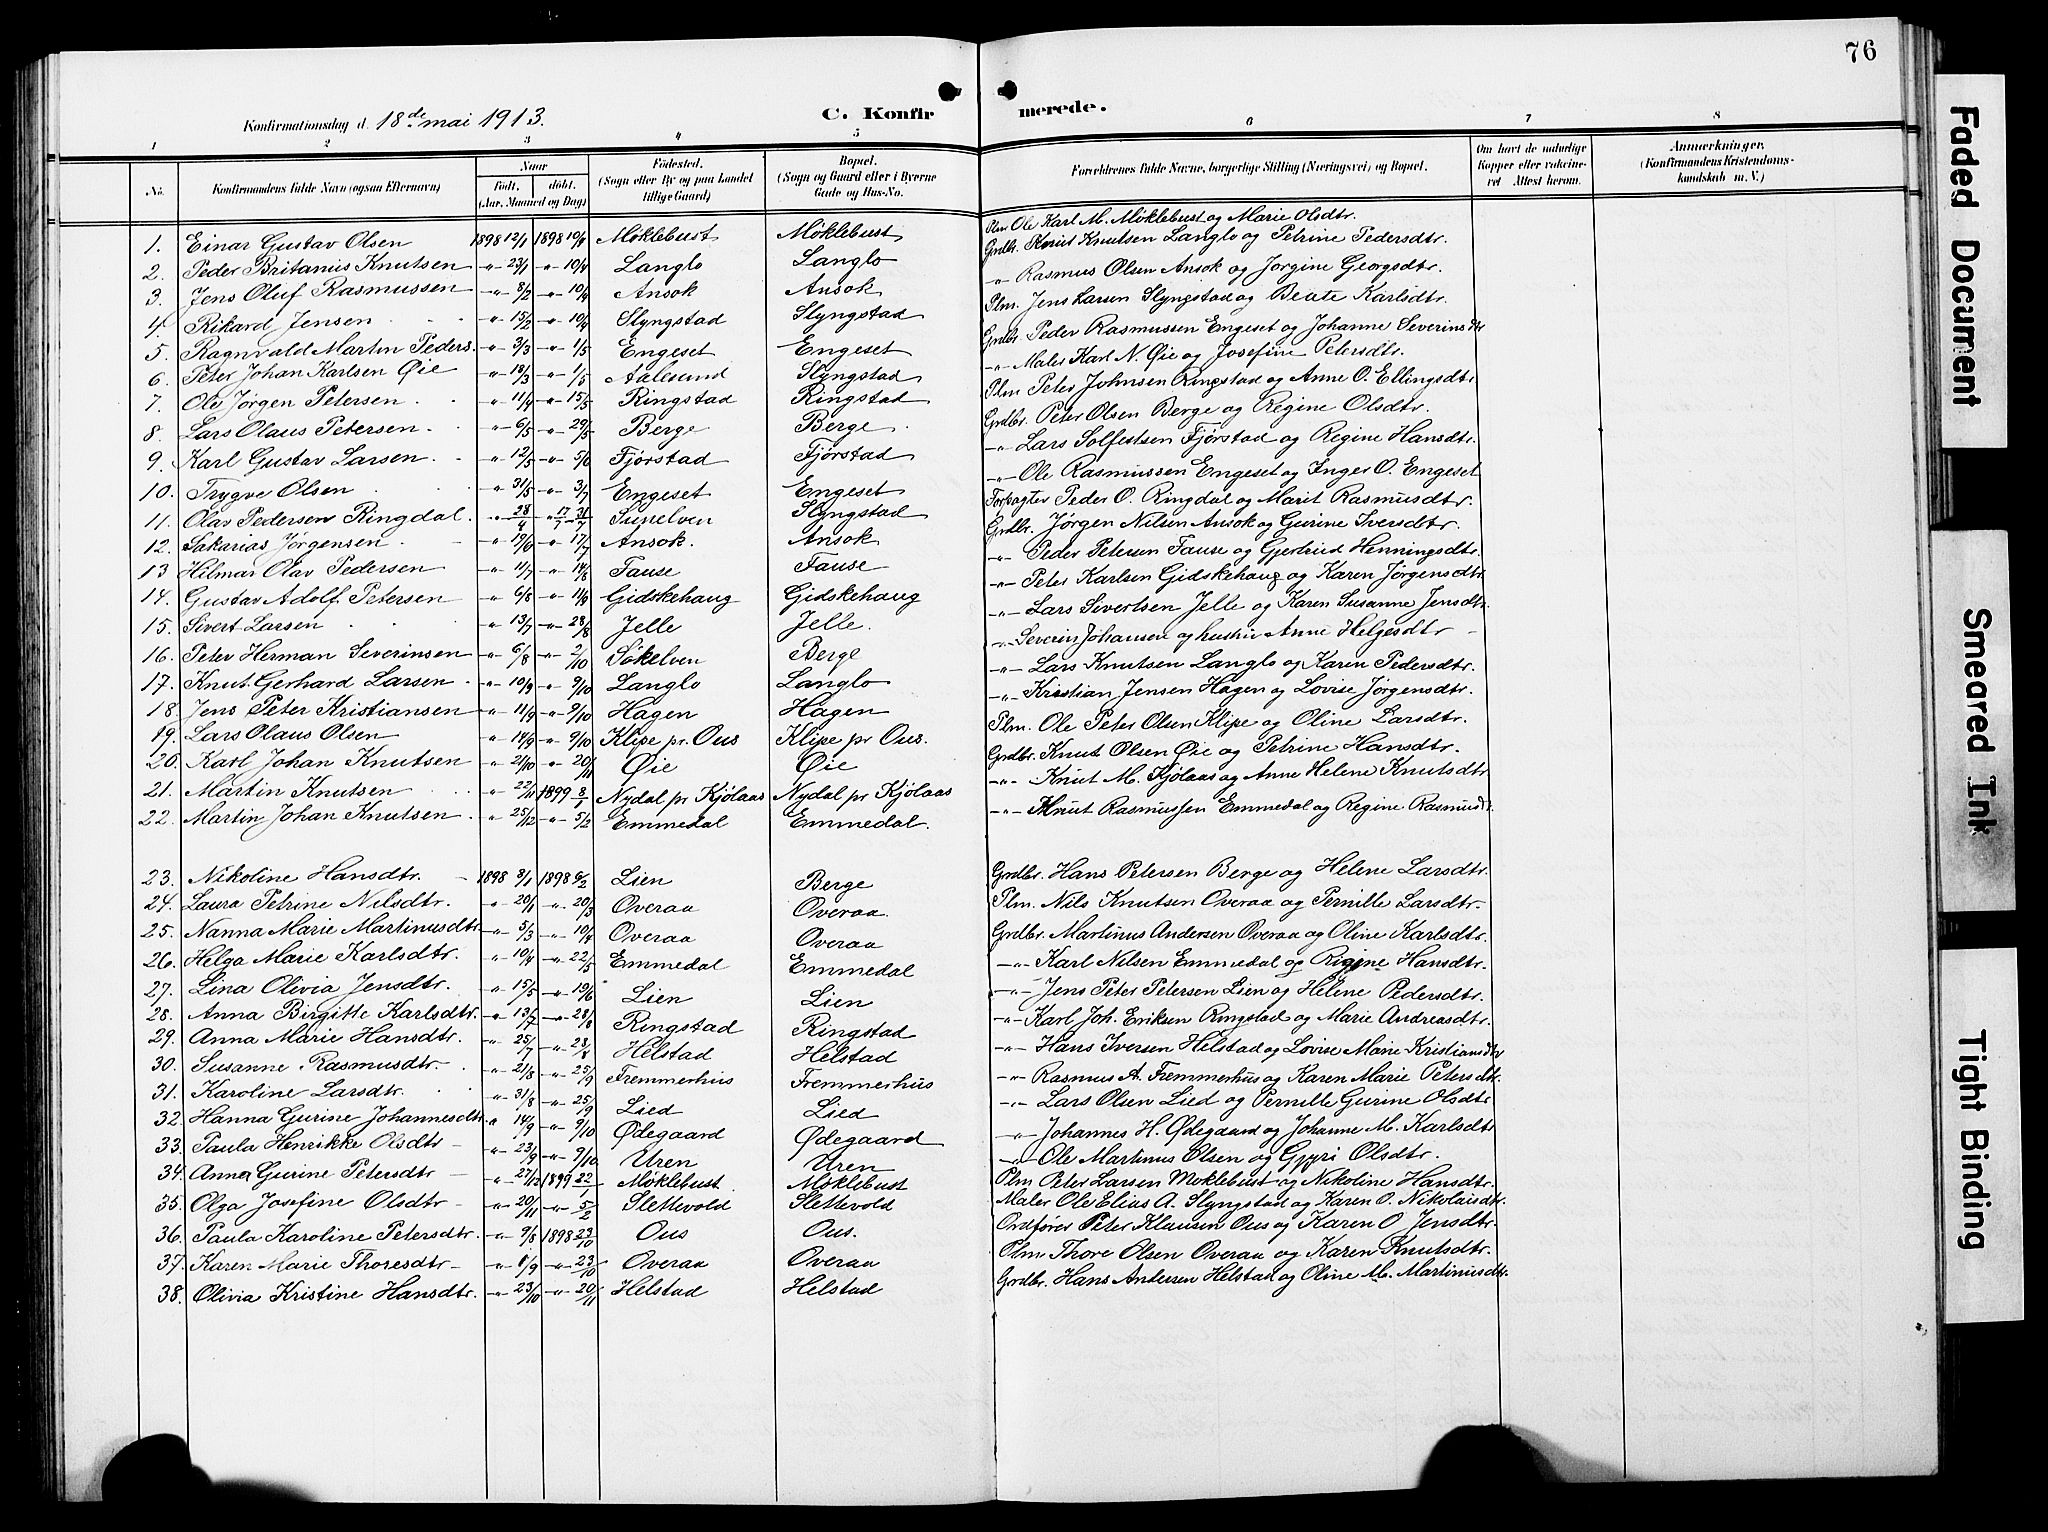 76
Konfirmationsdag d. 18de mai 1913.
C. Konfirmerede.
1 2 3 4 5 6 7 8
No. Konfirmandens fulde Navn (ogsaa Efternavn) Naar Født. døbt. (Aar, Maaned og Dag) Fødested. (Sogn eller By og paa Landet tillige Gaard) Bopæl. (Sogn og Gaard eller i Byerne Gade og Hus-No. Forældrenes fulde Navne, borgerlige Stilling (Næringsvei) og Bopæl. Om havt de naturlige Kopper eller vaccineret Attest herom. Anmærkninger. (Konfirmandens Kristendomskundskab m. V.)
1. Einar Gustav Olsen 1898 12/1 1898 19/1 Møklebust Møklebust Plm Ole Karl M. Møklebust og Marie Olsdtr.
2. Peder Britanius Knutsen -"- 23/1 -"- 10/4 Langlo Langlo Grdbr. Knut Knutsen Langlo og Petrine Pedersdtr.
3. Jens Oluf Rasmussen -"- 8/2 -"- 10/4 Ansok Ansok -"- Rasmus Olsen Ansok og Jorgine Georgsdtr.
4. Rikard Jensen -"- 15/2 -"- 10/4 Slyngstad Slyngstad Plm. Jens Larsen Slyngstad og Beate Karlsdtr.
5. Ragnvald Martin Peders. -"- 3/3 -"- 1/5 Engeset Engeset Grdbr. Peder Rasmussen Engeset og Johanne Severinsdtr
6. Peter Johan Karlsen Øie -"- 18/3 -"- 1/5 Aalesund Slyngstad -"- Maler Karl N. Øie og Josefine Petersdtr.
7. Ole Jørgen Petersen -"- 11/4 -"- 15/5 Ringstad Ringstad Plm Peter Johnsen Ringstad og Anne O. Ellingsdtr
8. Lars Olaus Petersen -"- 6/5 -"- 29/5 Berge Berge Grdbr. Peter Olsen Berge og Regine Olsdtr.
9. Karl Gustav Larsen -"- 12/5 -"- 5/6 Fjørstad Fjørstad -"- Lars Solfestsen Fjørstad og Regine Hansdtr.
10. Trygve Olsen -"- 31/5 -"- 3/7 Engeset Engeset -"- Ole Rasmussen Engeset og Inger O. Engeset
11. Olav Pedersen Ringdal -"- 28/4 17/7 31/7 Sunelven Slyngstad Forpagter Peder O. Ringdal og Marit Rasmusdtr.
12. Sakarias Jørgensen -"- 19/6 -"- 17/7 Ansok. Ansok Grdbr. Jørgen Nilsen Ansok og Gurine Iversdtr.
13 Hilmar Olav Pedersen -"- 11/7 -"- 14/8 Fause Fause -"- Peder Petersen Fause og Gjertrud Henningsdtr.
14. Gustav Adolf Petersen -"- 6/8 -"- 11/9 Gidskehaug Gidskehaug -"- Peter Karlsen Gidskehaug og Karen Jørgensdtr.
15. Sivert Larsen -"- 13/7 -"- 28/8 Jelle Jelle. -"- Lars Sivertsen Jelle og Karen Susanne Jensdtr.
16. Peter Herman Severinsen -"- 6/8 -"- 2/10 Søkelven Berge -"- Severin Johansen og hustru Anne Helgesdtr
17. Knut Gerhard Larsen -"- 10/9 -"- 9/10 Langlo Langlo -"- Lars Knutsen Langlo og Karen Pedersdtr.
18 Jens Peter Kristiansen -"- 11/9 -"- 9/10 Hagen Hagen -"- Kristian Jensen Hagen og Lovise Jørgensdtr.
19. Lars Olaus Olsen -"- 14/9 -"- 9/10 Klipe pr. Ous Klipe pr Ous. Plm. Ole Peter Olsen Klipe og Oline Larsdtr.
20. Karl Johan Knutsen -"- 21/10 -"- 20/11 Øie Øie Grdbr. Knut Olsen Øie og Petrine Hansdtr.
21. Martin Knutsen -"- 22/11 1899 8/1 Nydal pr Kjølaas Nydal pr Kjølaas -"- Knut M. Kjølaas og Anne Helene Knutsdtr
22. Martin Johan Knutsen -"- 25/12 -"- 5/2 Emmedal Emmedal. -"- Knut Rasmussen Emmedal og Regine Rasmusdt.
23. Nikoline Hansdtr. 1898 8/1 1898 6/2 Lien Berge Grdbr. Hans Petersen Berge og Helene Larsdtr.
24. Laura Petrine Nilsdtr. -"- 20/1 -"- 20/3 Overaa Overaa. Plm. Nils Knutsen Overaa og Pernille Larsdtr.
25. Nanna Marie Martinusdtr -"- 5/3 -"- 10/4 Overaa Overaa Grdbr. Martinus Andersen Overaa og Oline Karlsdtr.
26. Helga Marie Karlsdtr. -"- 10/4 -"- 22/5 Emmedal Emmedal -"- Karl Nilsen Emmedal og Rigine Hansdtr.
27. Lina Olivia Jensdtr. -"- 15/5 -"- 19/6 Lien Lien -"- Jens Peter Petersen Lien og Helene Pedersdtr.
28. Anna Birgitte Karlsdtr. -"- 13/7 -"- 28/8 Ringstad Ringstad -"- Karl Joh. Eriksen Ringstad og Marie Andreasdtr.
29. Anna Marie Hansdtr. -"- 25/7 -"- 28/8 Helstad Helstad -"- Hans Iversen Helstad og Lovise Marie Kristiansdtr
30. Susanne Rasmusdtr. -"- 21/8 -"- 25/9 Fremmerhus Fremmerhus -"- Rasmus A. Fremmerhus og Karen Marie Petersdtr.
31. Karoline Larsdtr. -"- 31/8 -"- 25/9 Lied Lied -"- Lars Olsen Lied og Pernille Gurine Olsdtr
32. Hanna Gurine Johannesdtr. -"- 14/9 -"- 9/10 Ødegaard Ødegaard -"- Johannes H. Ødegaard og Johanne M. Karlsdtr
33. Paula Henrikke Olsdtr -"- 23/9 -"- 9/10. Uren Uren -"- Ole Martinus Olsen og Gyri Olsdtr.
34. Anna Gurine Petersdtr -"- 27/12 1899 22/1 Møklebust Møklebust Plm Peter Larsen Moklebust og Nikoline Hansdtr.
35. Olga Josefine Olsdtr -"- 20/11 -"- 5/2 Slettevold Slettevold Maler Ole Elias A. Slyngstad og Karen O. Nikolaisdtr
36. Paula Karoline Petersdtr. -"- 9/8 1898 23/10 Ous Ous. Ordfører Peter Klausen Ous og Karen O. Jensdtr.
37. Karen Marie Thoresdtr -"- 1/9 -"- 23/10 Overaa Overaa Plm Thore Olsen Overaa og Karen Knutsdtr.
38. Olivia Kristine Hansdtr. -"- 23/10 -"- 20/11 Helstad Helstad Grdbr. Hans Andersen Helstad og Oline M. Martinusdtr.
Faded Document
Smeared Ink
Tight Binding